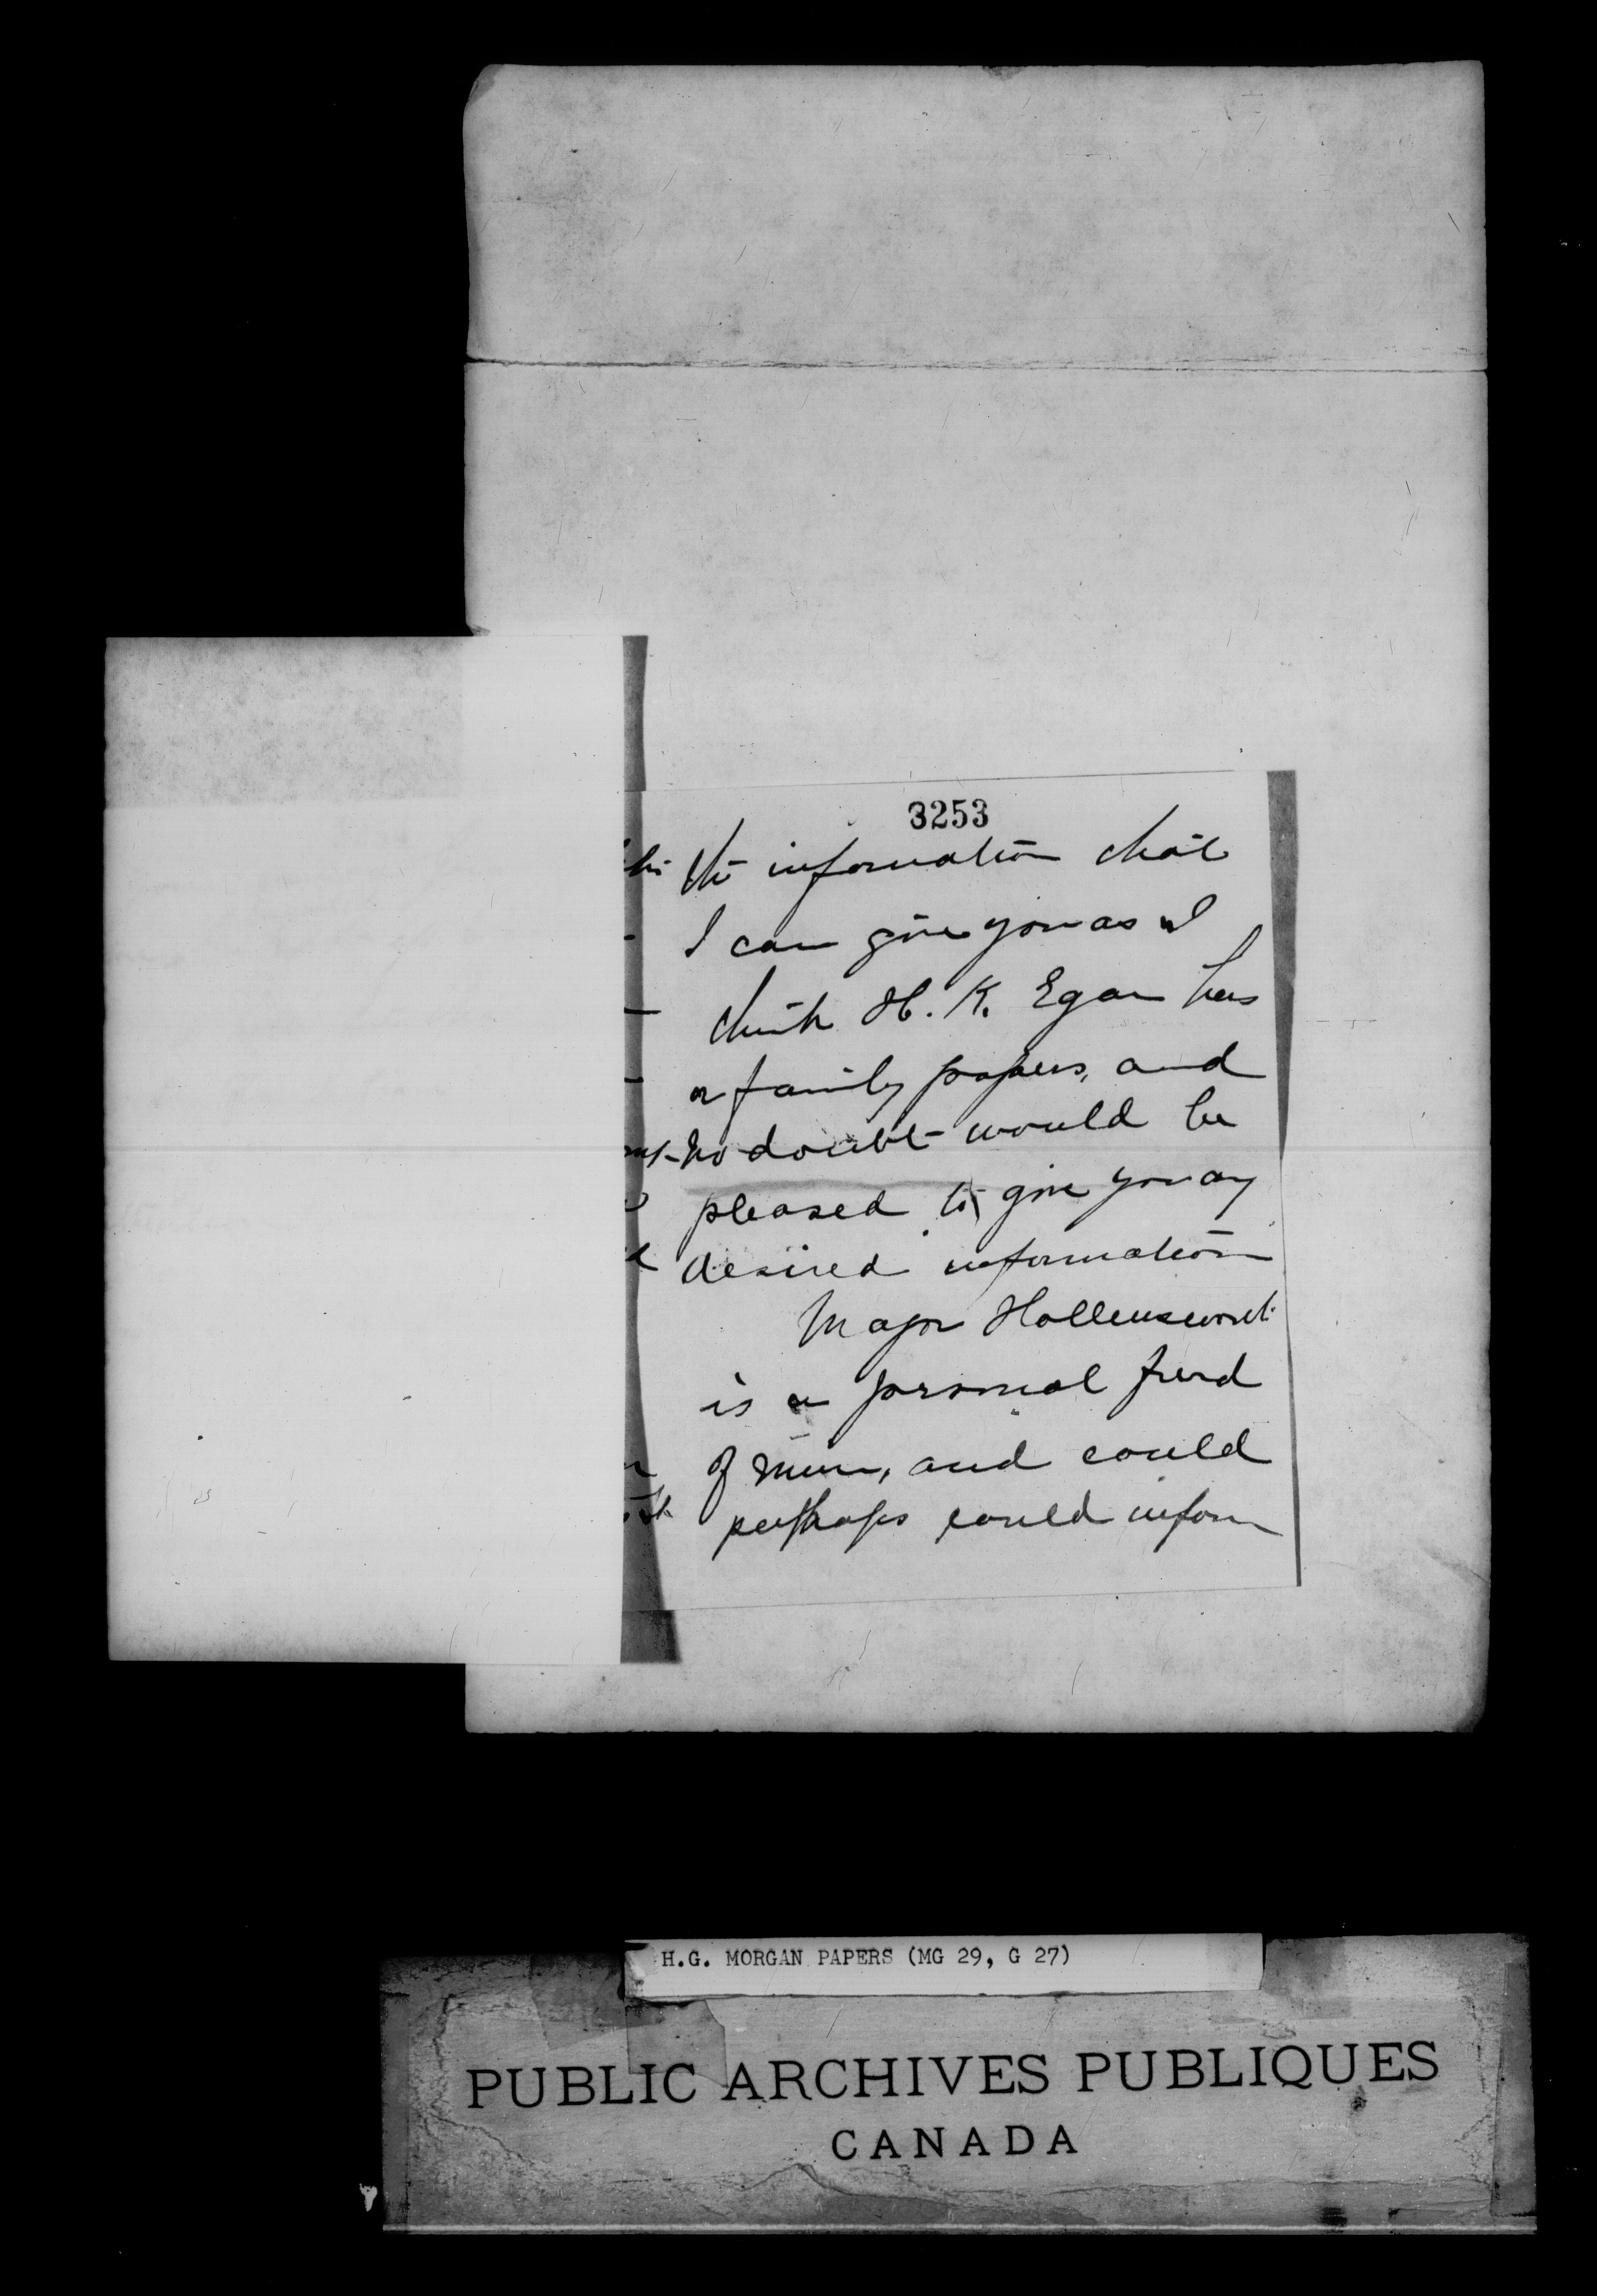 3253
the information that
I can give you as I
think H. K. Egan has
a family papers, and
no doubt would be
pleased to give you any
desired information
Major Hollensworth
is a personal friend
of mine, and could
perhaps could inform
H.G. MORGAN PAPERS (MG 29, G 27)
PUBLIC ARCHIVES PUBLIQUES
CANADA